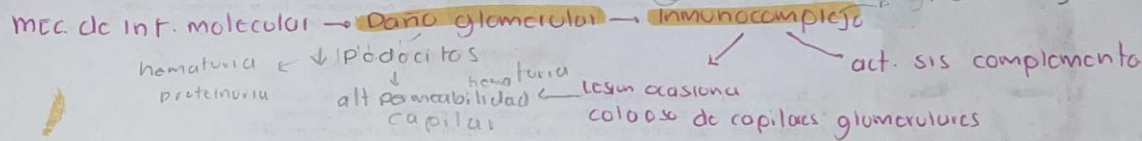 mec. de inf. molecular → Daño glomerular → Inmunocomplejo
hematuria ← ↓ Podocitos
act. sis complemento
proteinuria
↓ hematuria
alt permeabilidad ← lesion ocasiona
capilar
colapso de capilares glomerulares